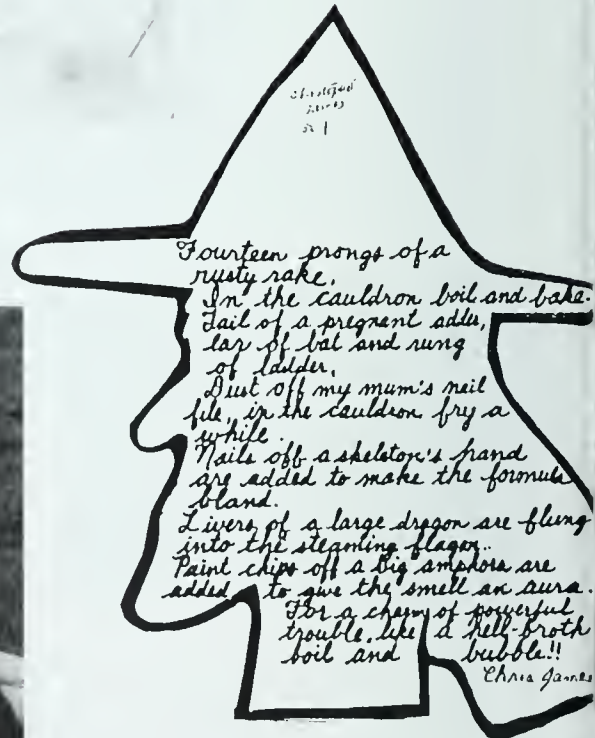 Fourteen prongs of a
rusty rake,
In the cauldron boil and bake.
Tail of a pregnant adder,
Ear of bat and rung
of ladder,
Dust off my mum's nail
file, in the cauldron fry a
while.
Nails off a skeleton's hand
are added to make the formula
bland.
Livers of a large dragon are flung
into the steaming flagon..
Paint chips off a big amphora are
added to give the smell an aura.
For a charm of powerful
trouble, like a hell-broth
boil and bubble!!
Chris James